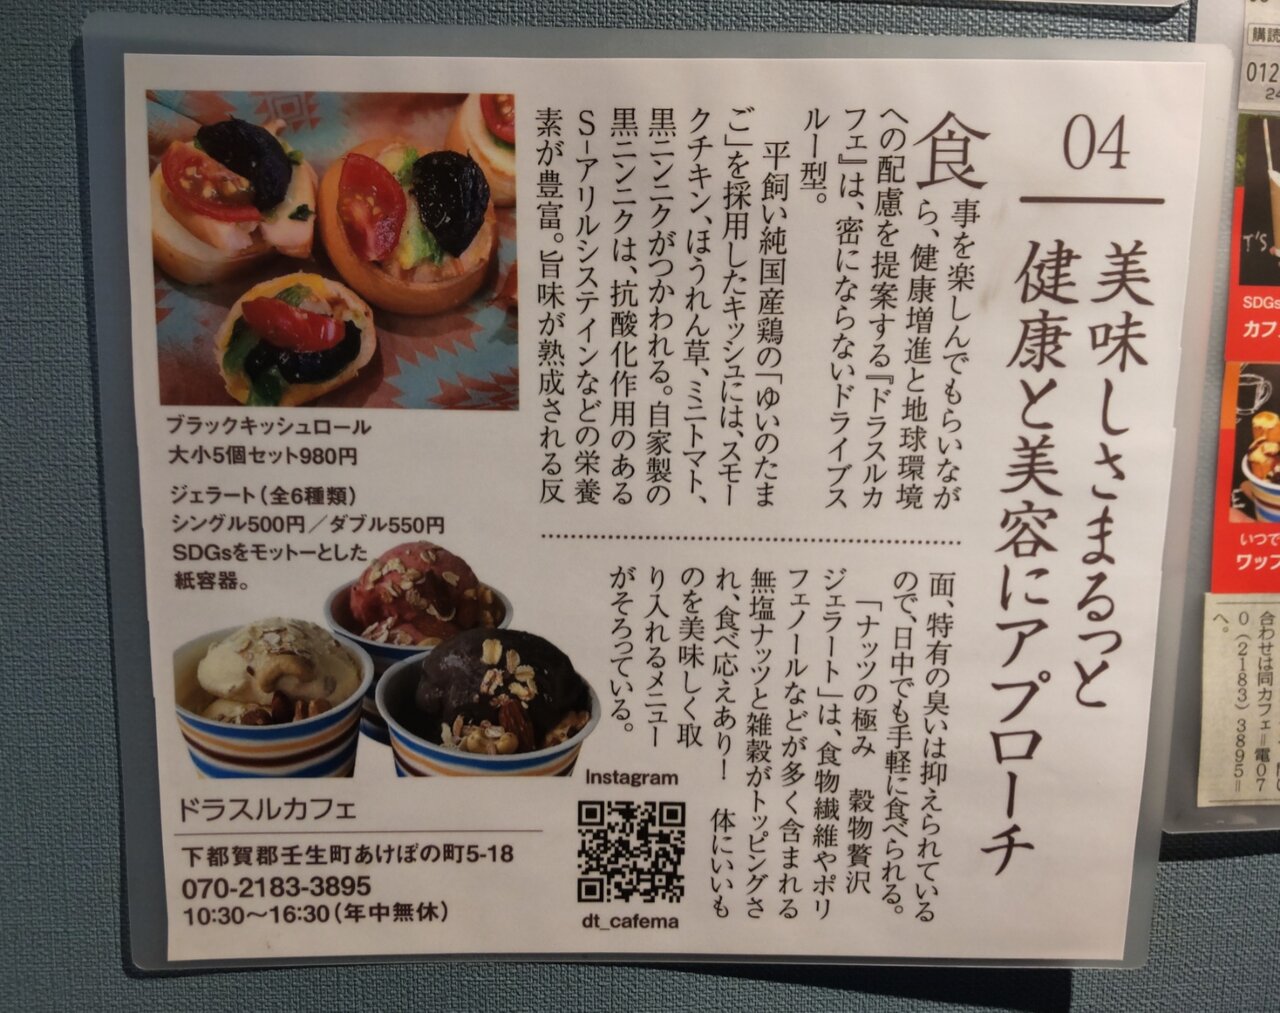 04
美味しさまるっと
健康と美容にアプローチ
食事を楽しんでもらいなが
ら、健康増進と地球環境
への配慮を提案する『ドラスルカ
フェ』は、密にならないドライブス
ルー型。
平飼い純国産鶏の「ゆいのたま
ご」を採用したキッシュには、スモー
クチキン、ほうれん草、ミニトマト、
黒ニンニクがつかわれる。自家製の
黒ニンニクは、抗酸化作用のある
S-アリルシステインなどの栄養
素が豊富。旨味が熟成される反
面、特有の臭いは抑えられている
ので、日中でも手軽に食べられる。
「ナッツの極み 穀物贅沢
ジェラート」は、食物繊維やポリ
フェノールなどが多く含まれる
無塩ナッツと雑穀がトッピングさ
れ、食べ応えあり! 体にいいも
のを美味しく取
り入れるメニュー
がそろっている。
ブラックキッシュロール
大小5個セット980円
ジェラート(全6種類)
シングル500円/ダブル550円
SDGsをモットーとした
紙容器。
Instagram
dt_cafema
ドラスルカフェ
下都賀郡壬生町あけぼの町5-18
070-2183-3895
10:30~16:30(年中無休)
購読
012
24
T'S
SDGs
カフ
いつで
ワッフ
合わせは同カフェ=電07
0(2183)3895=
へ。